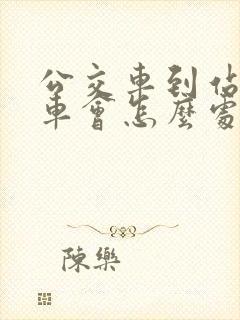 公交車到佔
車會怎麼處
陳樂